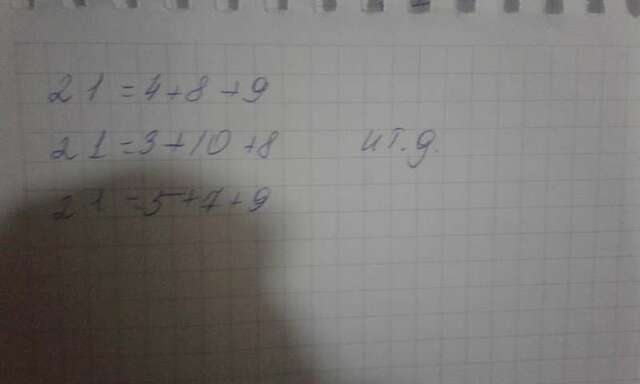 21 = 4+8+9
21 = 3+10+8 и т.д.
21 = 5+7+9